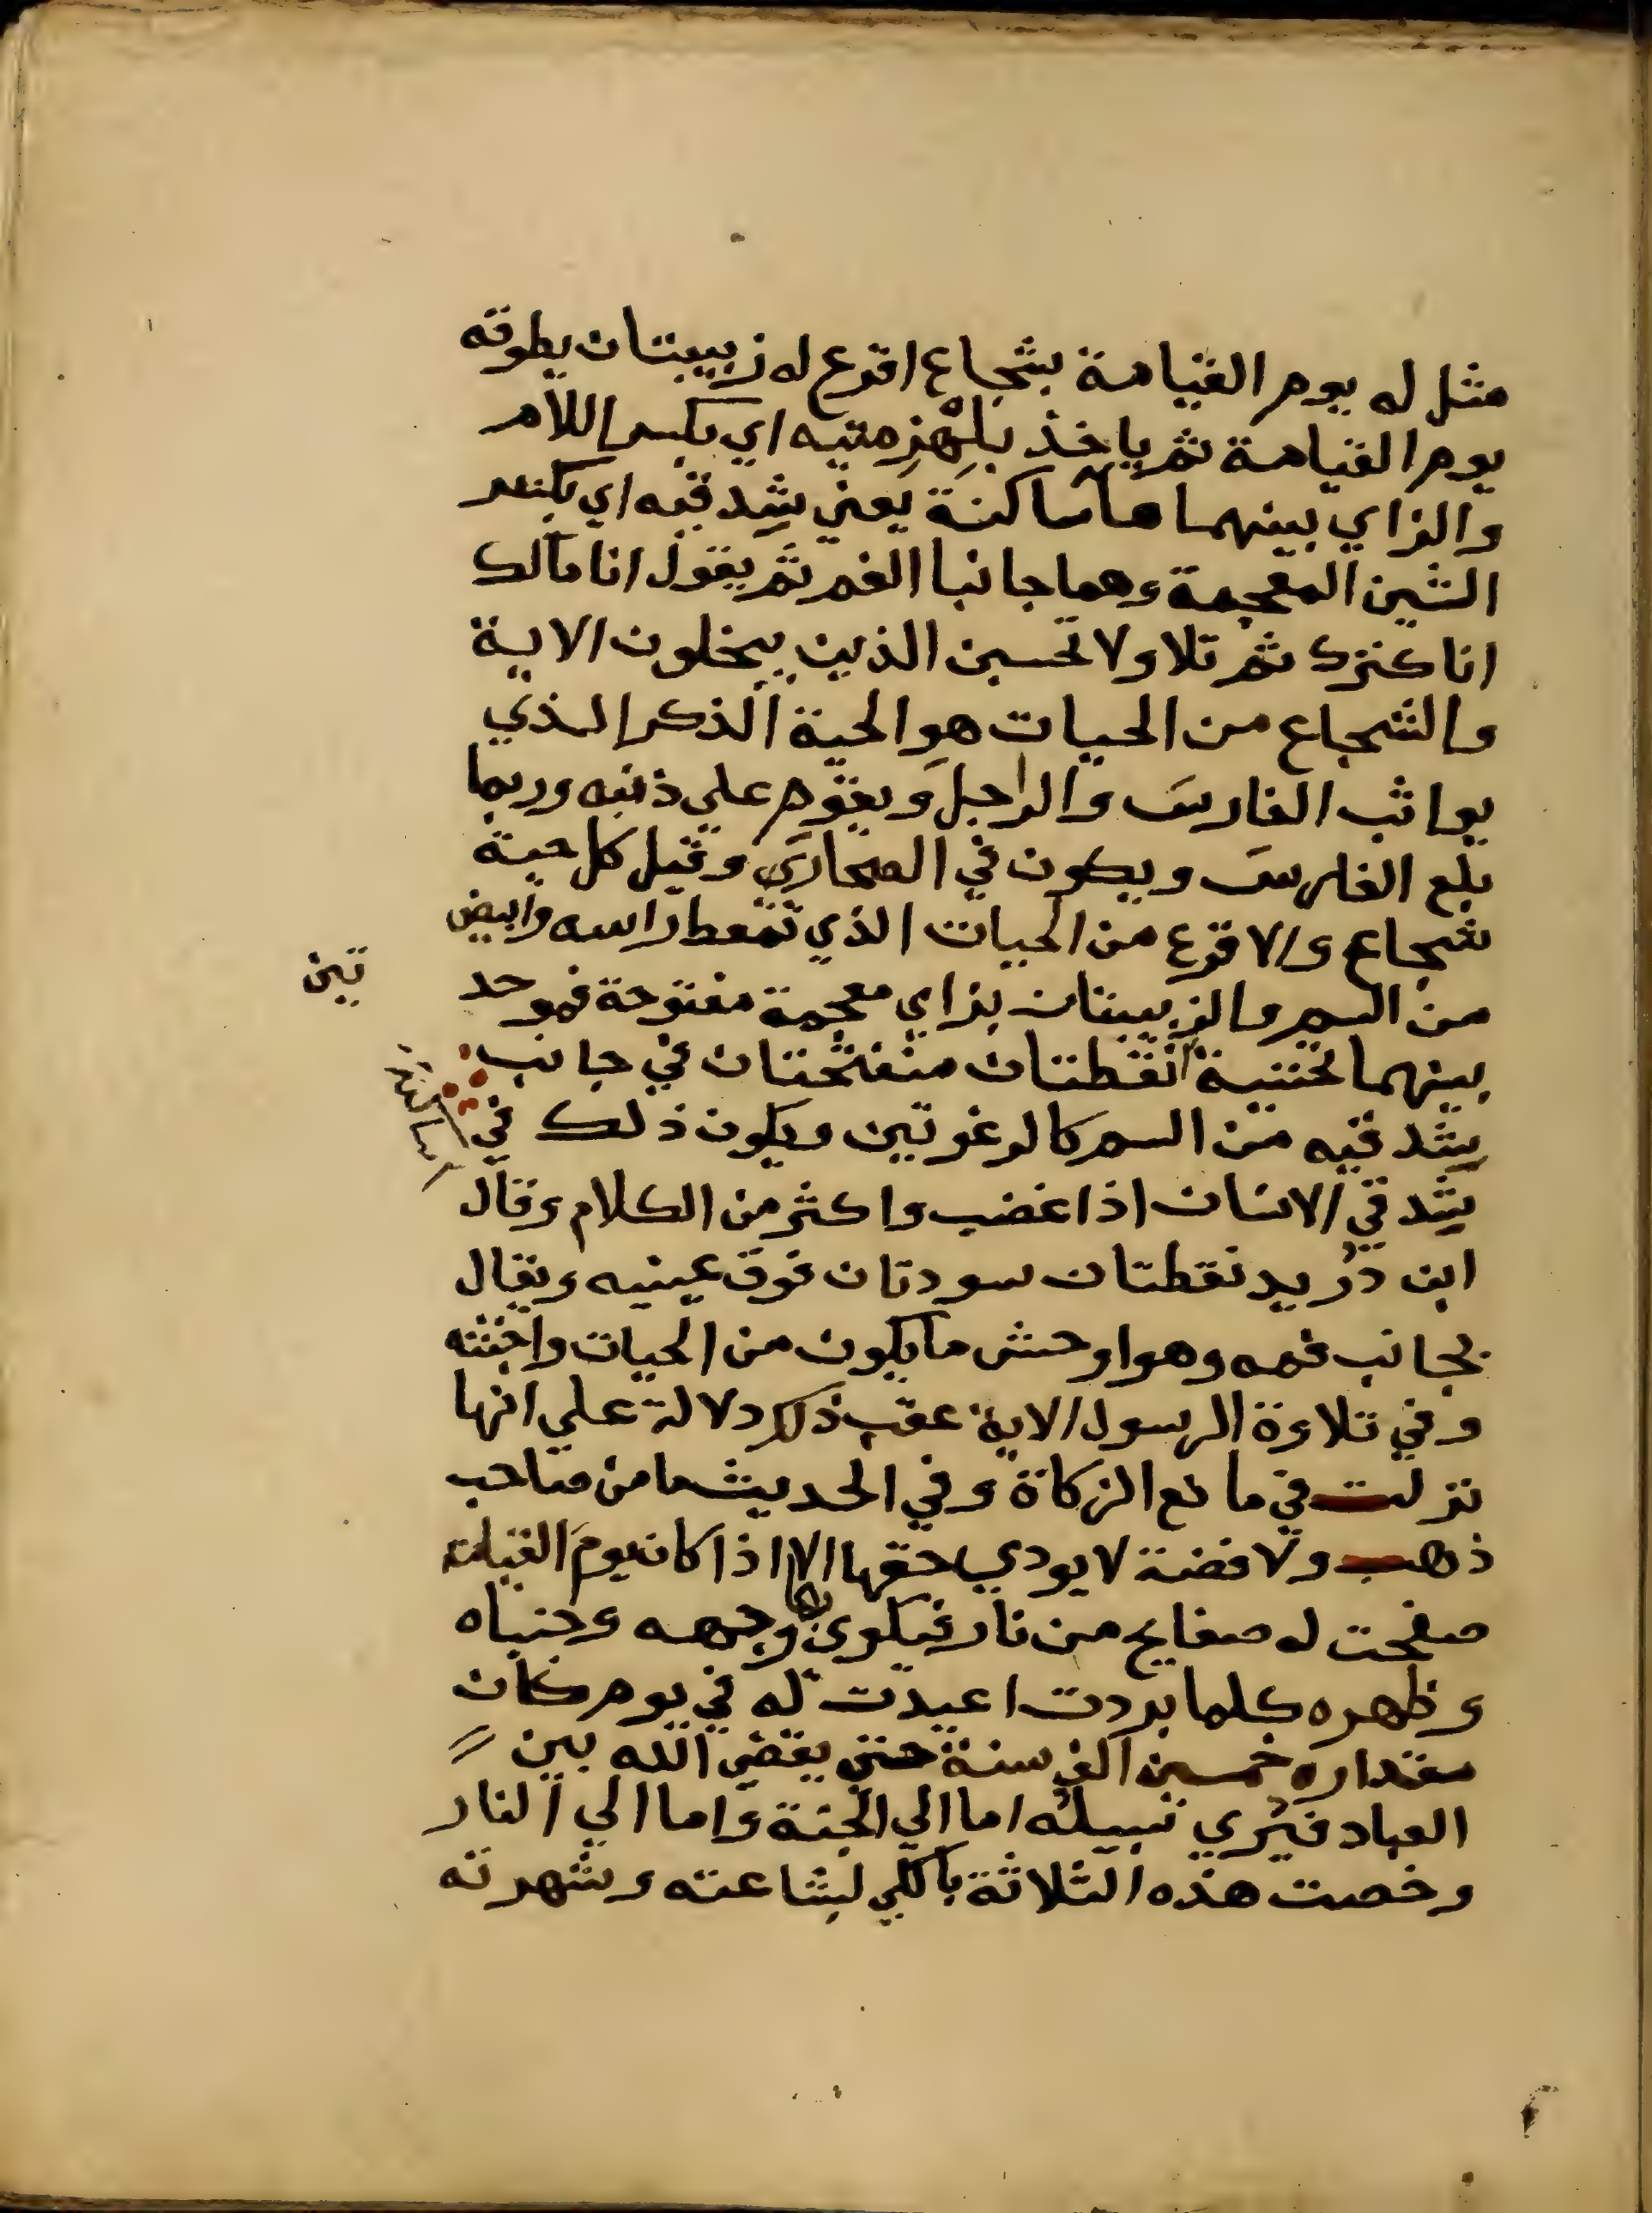 مثل له يوم القيامة بشجاع اقرع له زبيبتان يطوقه
يوم القيامة ثم ياخذ بلِهْزِمتيه اي بكسر اللام
والزاي بينهما هآ ساكنة يعني بشِدقيه اي بكسر
الشين المعجمة وهما جانبا الفم ثم يقول انا مالك
انا كنزك ثم تلا ولا تحسبن الذين يبخلون الاية
والشجاع من الحيات هو الحية الذكر الذي
يواثب الفارس والراجل ويقوم على ذنبه وربما
بلع الفارس ويكون في الصحاري وقيل كل حية
شجاع والاقرع من الحيات الذي تمعط راسه وابيض
من السم والزبيبتان بزاي معجمة مفتوحة فموحد
تين
بينهما تحتية نقطتان منفتختان في جانب
شدقيه من السم كالرغوتين ويكون ذلك في
شدقي الانسان اذا غضب واكثر من الكلام وقال
ابن دُريد نقطتان سودتان فوق عينيه ويقال
بجانب فمه وهو اوحش ما يكون من الحيات واخبثه
وفي تلاوة الرسول الاية عقب ذلك دلالة علي انها
نزلت في مانع الزكاة وفي الحديث ما من صاحب
ذهب ولا فضة لا يودي حقها الا اذا كان يوم القيامة
صفحت له صفايح من نار فيكوي بها وجهه وجنباه
وظهره كلما بردت اعيدت له في يوم كان
مقداره خمسين الف سنة حتى يقضي الله بين
العباد فيُري سبيلُه اما الي الجنة واما الي النار
وخصت هذه الثلاثة بالكي لبشاعته وشهرته